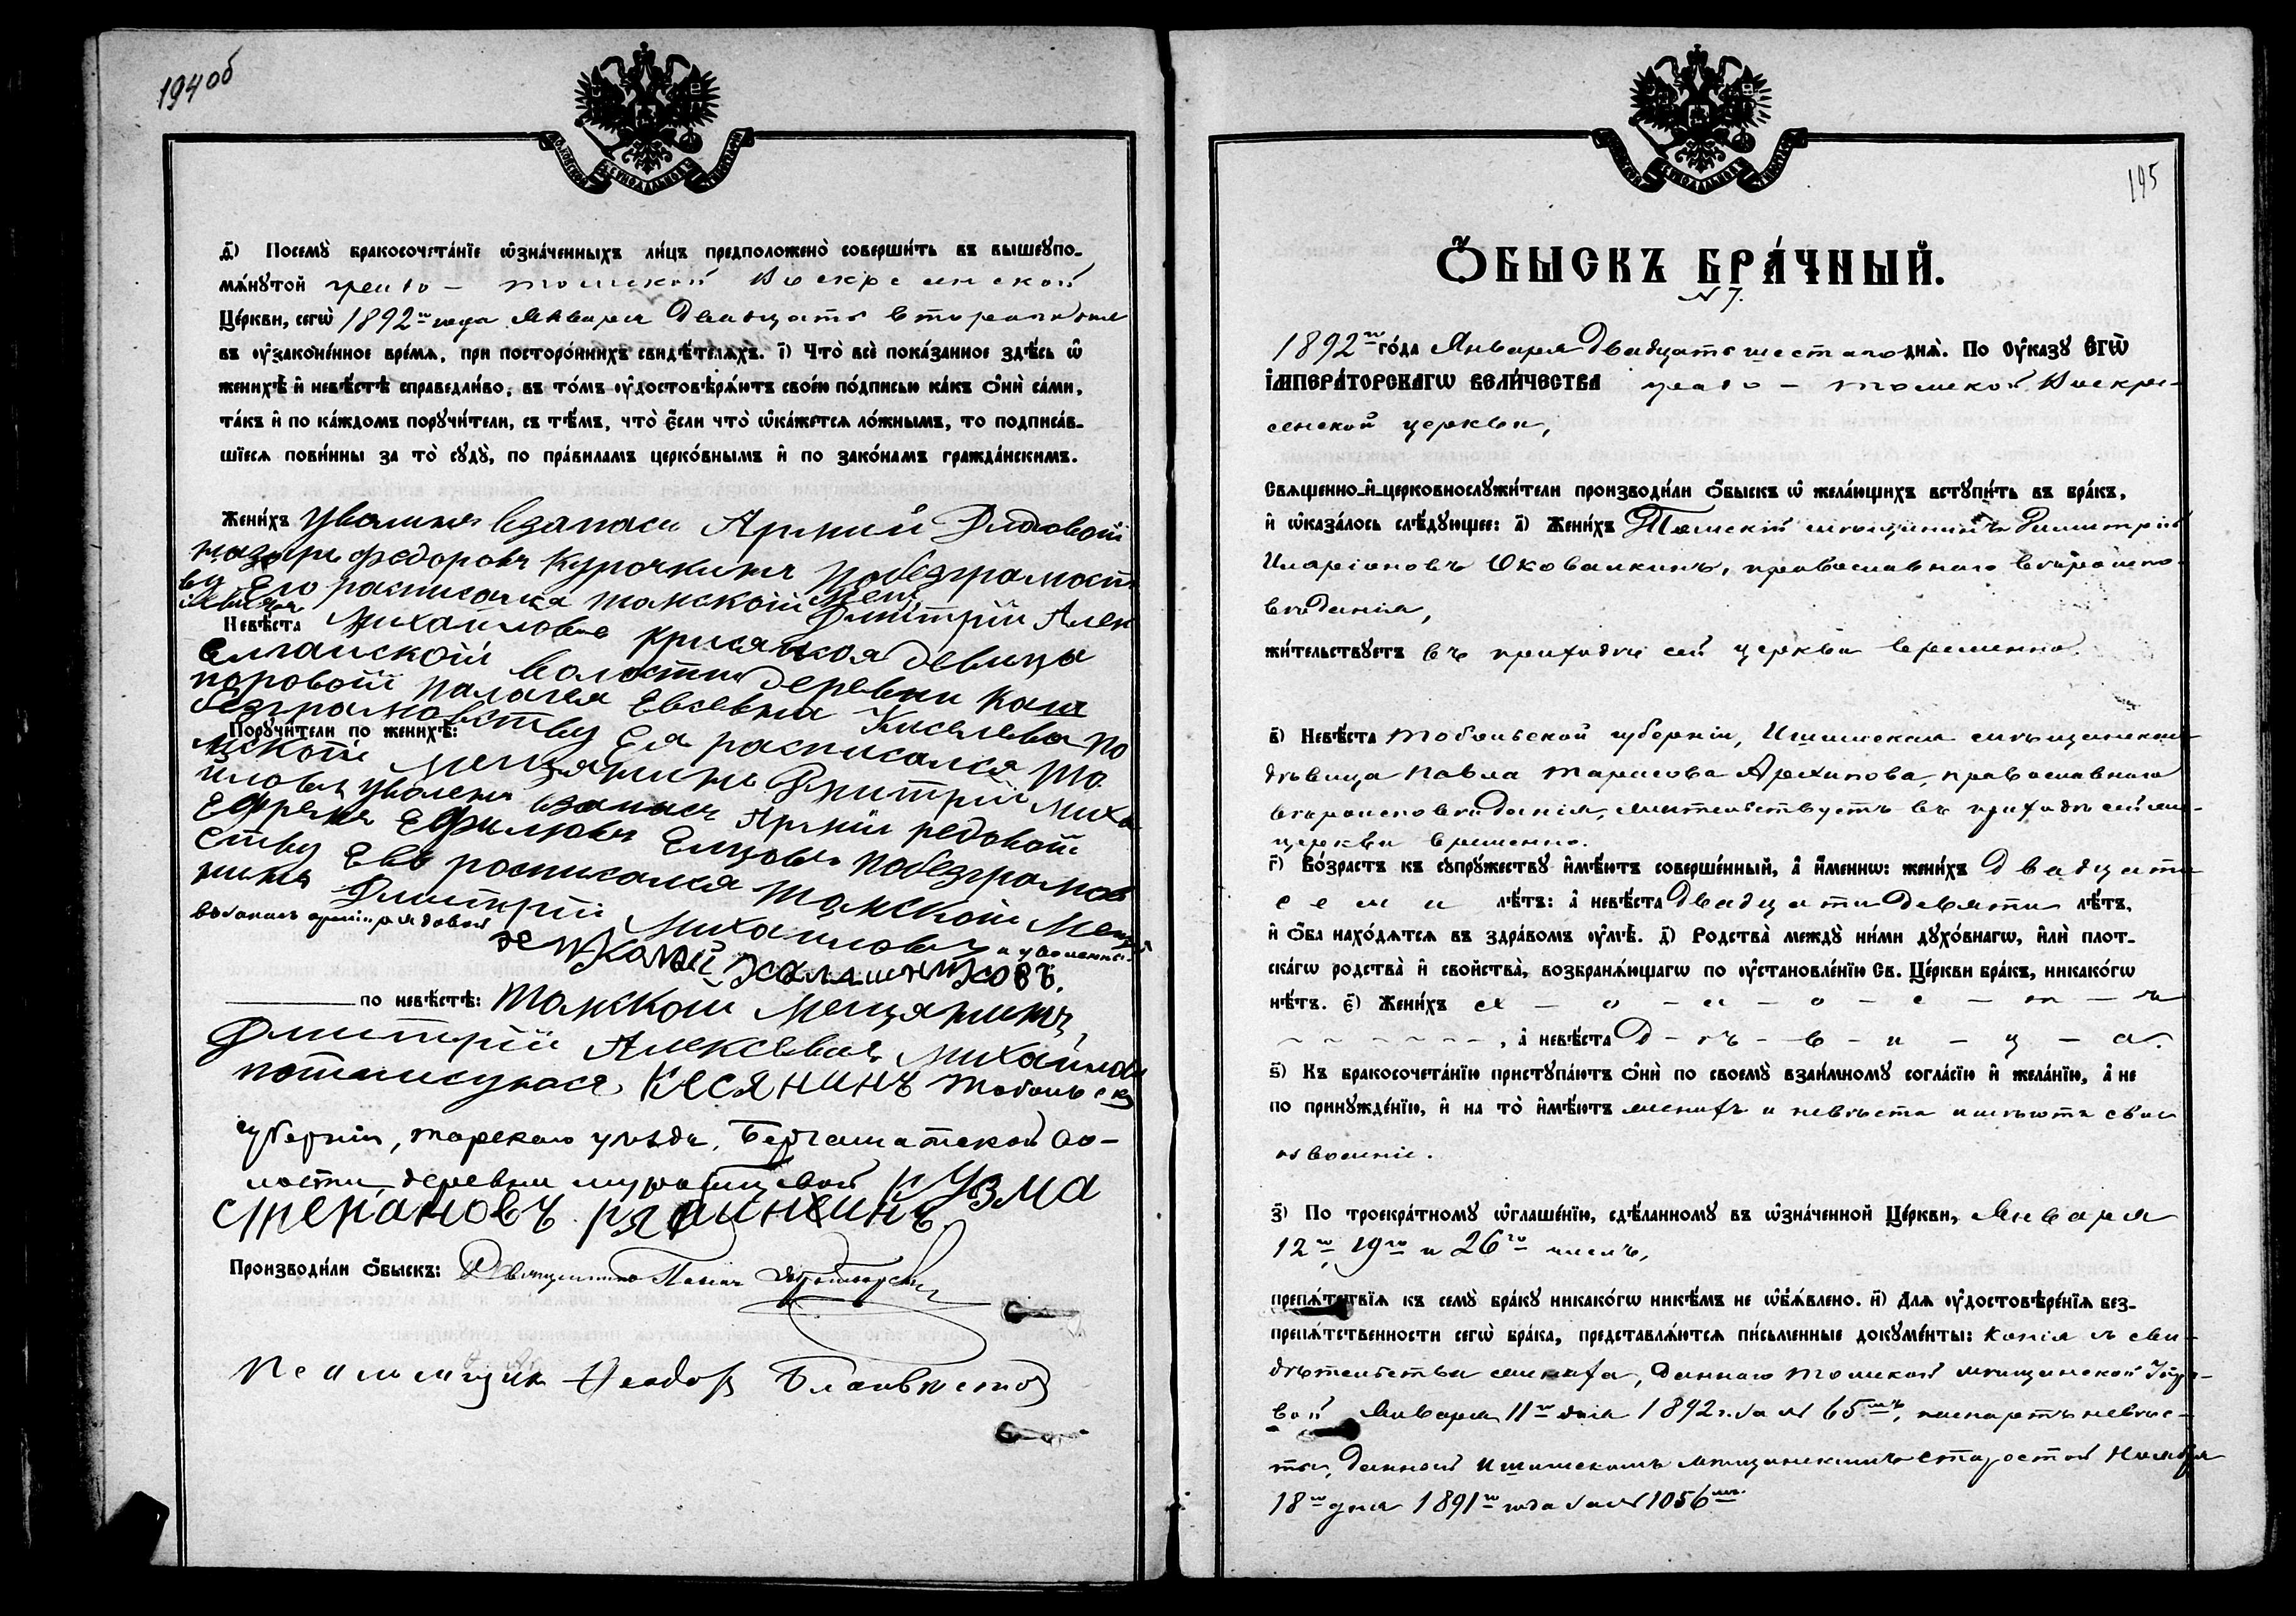 194 об
д҃) Посемꙋ̀ бракосочета́нїе ѡ҆зна́ченныхъ ли́цъ предположено̀ соверши́ть въ вышеꙋпо-
мѧ́нꙋтой градо - Томской Воскресенской
Це́ркви, сегѡ̀ 1892го года Января двадцать втораго дня
въ ᲂу҆зако́ненное вре́мѧ, при посторо́ннихъ свидѣ́телѧхъ. і҃) Что̀ всѐ пока́занное здѣ́сь ѡ҆
женихѣ̀ и҆ невѣ́стѣ справедли́во, въ то́мъ ᲂу҆достовѣрѧ́ютъ свое́ю по́дписью ка́къ ѻ҆нѝ са́ми,
та́къ и҆ по ка́ждомъ порꙋчи́тели, съ тѣ́мъ, что̀ є҆́сли что̀ ѡ҆ка́жетсѧ ло́жнымъ, то подписа́в-
шїесѧ пови́нны за то̀ сꙋдꙋ̀, по пра́виламъ церко́внымъ и҆ по зако́намъ гражда́нскимъ.
Жени́хъ уволинъ взапась Армии Рядовой
назаръ федоровъ Курочкинъ побезграмост
ву Его расписался томской мещ
Дмитрій Алек
сѣевичь
Невѣ́ста Михаиловъ крисянская девица
волости деревни
пелагея Евсевна Киселева по
безграмовству Ея расписался то
Порꙋчи́тели по женихѣ̀:
мской мещянинъ Дмитрій Миха
иловъ уволенъ взапась Армии редовой
Ефремъ Ефимовъ Елизовъ побезграмов
ству Ево росписался томской Мещя
нинъ Дмитрій Михаиловъ и уволенный
въ запасъ арміи рядовой
Калашниковъ.
по невѣ́стѣ: томской мещянинъ
Дмитрій Алексѣевъ Михайловъ
потписуюся Кесянинъ Тобольской
губерніи, Тарскаго уѣзда, Бергаматской во-
лости деревни Кузма
степановъ
Производи́ли ѻ҆́быскъ: Священникъ
Псаломщикъ Ѳеодоръ Благовѣстовъ
195
Ѻ҆́БЫСКЪ БРА́ЧНЫЙ.
№ 7.
1892го го́да Января двадцать шестаго днѧ̀. По ᲂу҆ка́зꙋ є҆гѡ̀
і҆мпера́торскагѡ вели́чества градо - Томской Воскре-
сенской церкви,
Свѧще́нно-и҆-церковнослꙋжи́тели производи́ли ѻ҆́быскъ ѡ҆ жела́ющихъ встꙋпи́ть въ бра́къ,
и҆ ѡ҆каза́лось слѣ́дꙋющее: а҃) Жени́хъ Томскій мѣщанинъ Димитрій
Иларіоновъ Оковалкинъ, православнаго вѣроиспо-
вѣданія,
жи́тельствꙋетъ въ приходѣ сей церкви временно.
в҃) Невѣ́ста Тобольской губерніи, Ишимская мѣщанская
дѣвица Павла Тарасова Архипова, православнаго
вѣроисповѣданія, жительствуетъ въ приходѣ сей же
церкви временно.
г҃) Во́зрастъ къ сꙋпрꙋ́жествꙋ и҆мѣ́ютъ соверше́нный, а҆ и҆́меннѡ: жени́хъ двадцати
семи лѣ́тъ: а҆ невѣ́ста двадцати девяти лѣ́тъ,
и҆ ѻ҆́ба нахо́дѧтсѧ въ здра́вомъ ᲂу҆мѣ̀. д҃) Родства̀ междꙋ̀ ни́ми дꙋхо́внагѡ, и҆лѝ плот-
ска́гѡ родства̀ и҆ сво́йства̀, возбранѧ́ющагѡ по ᲂу҆становле́нїю Св. Це́ркви бра́къ, никако́гѡ
нѣ́тъ. є҃) Жени́хъ х - о - л - о - с - т - ъ
, а҆ невѣ́ста Д - ѣ - в - и - ц - а.
ѕ҃) Къ бракосочета́нїю пристꙋпа́ютъ ѻ҆нѝ по своемꙋ̀ взаи́мномꙋ согла́сїю и҆ жела́нїю, а҆ не
по принꙋжде́нїю, и҆ на то̀ и҆мѣ́ютъ женихъ и невѣста имѣютъ свое
изволеніе.
з҃) По троекра́тномꙋ ѡ҆глаше́нїю, сдѣ́ланномꙋ въ ѡ҆зна́ченной Це́ркви, Января
12го, 19го и 26го числъ,
препѧ́тствїѧ къ семꙋ̀ бра́кꙋ никако́гѡ никѣ́мъ не ѡ҆б̾ѧ́влено. и҃) Длѧ ᲂу҆достовѣре́нїѧ без-
препѧ́тственности сегѡ̀ бра́ка, представлѧ́ютсѧ пи́сьменные докꙋме́нты: копія съ сви-
дѣтельства жениха, даннаго Томской мѣщанской Упра-
вой Января 11го дня 1892 г. за № 65мъ, паспортъ невѣс-
ты, данный Ишимскимъ мѣщанскимъ старостой Ноября
18го дня 1891го года за № 1056мъ.